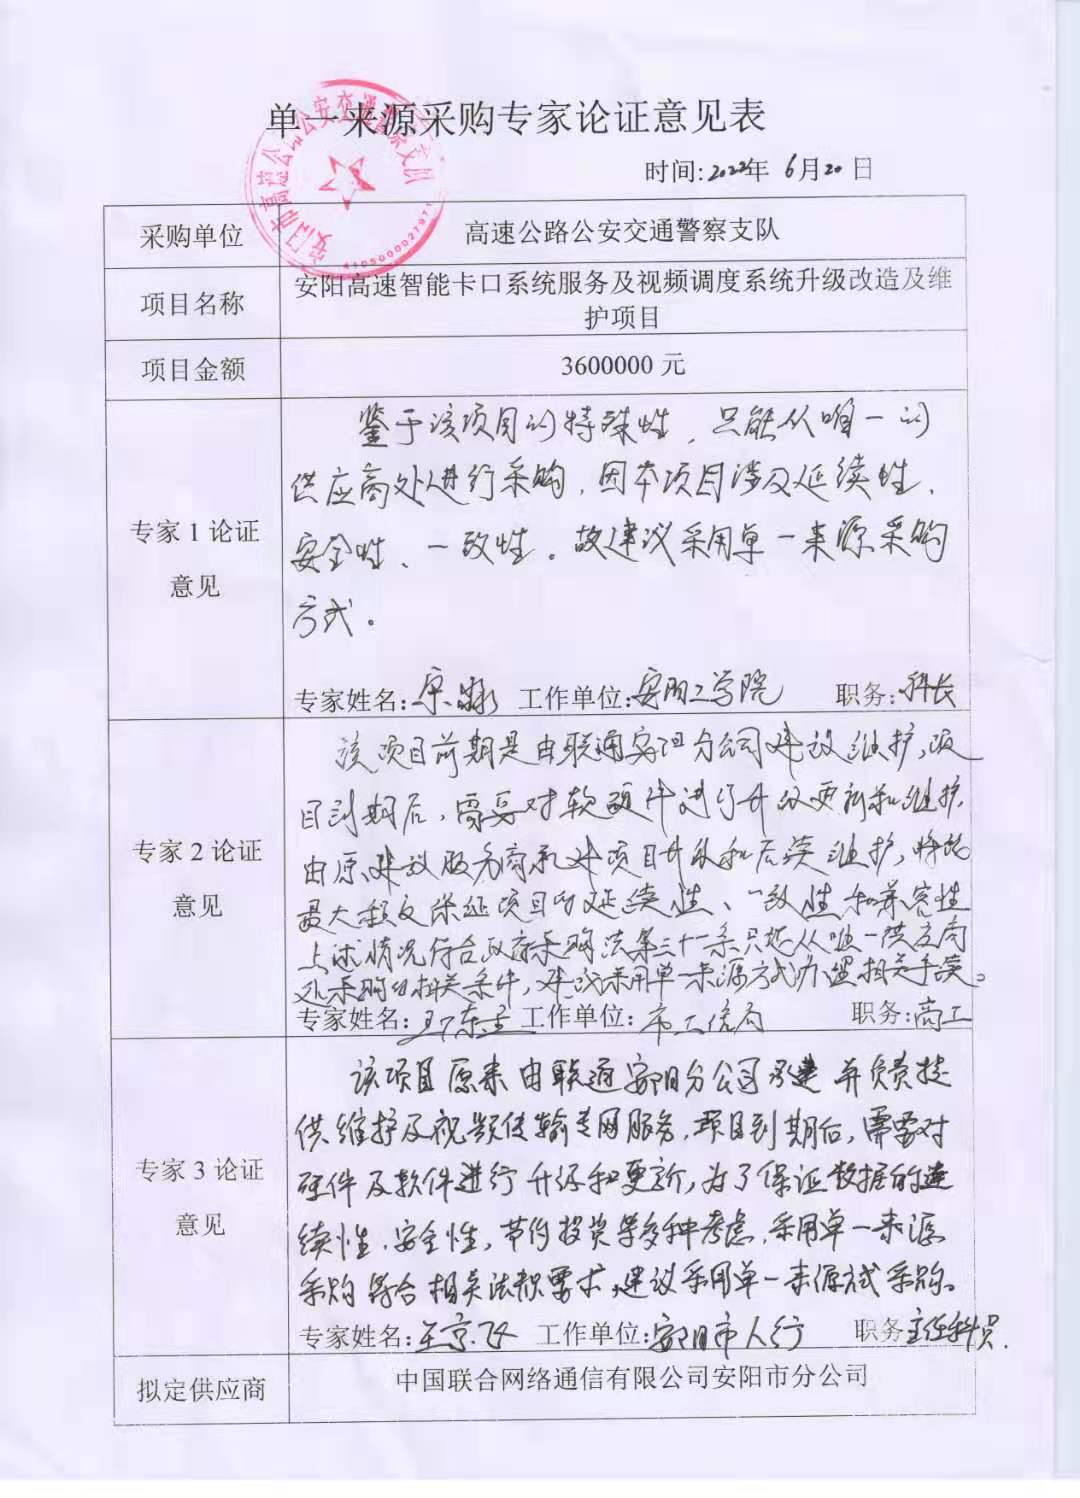 单一来源采购专家论证意见表
时间:2022年 6月20日
采购单位
高速公路公安交通警察支队
4105000027971
项目名称
安阳高速智能卡口系统服务及视频调度系统升级改造及维
护项目
项目金额
3600000 元
专家 1 论证
意见
鉴于该项目的特殊性，只能从唯一的
供应商处进行采购，因本项目涉及延续性、
安全性、一致性。故建议采用单一来源采购
方式。
专家姓名: 工作单位:安阳工学院 职务:科长
专家 2 论证
意见
该项目前期是由联通安阳分公司建设维护，项
目到期后，需要对软硬件进行升级更新和维护，
由原建设服务商承建项目升级和后续维护，将能
最大程度保证项目的延续性、一致性和兼容性
上述情况符合政府采购法第三十一条只能从唯一供应商
处采购的相关条件，建议采用单一来源方式办理相关手续。
专家姓名: 工作单位:市工信局 职务:高工
专家 3 论证
意见
该项目原来由联通安阳分公司承建并负责提
供维护及视频传输专网服务，项目到期后，需要对
硬件及软件进行升级和更新，为了保证数据的连
续性、安全性，节约投资等多种考虑，采用单一来源
采购符合相关法规要求，建议采用单一来源方式采购。
专家姓名:王京飞 工作单位:安阳市人行 职务主任科员.
拟定供应商
中国联合网络通信有限公司安阳市分公司